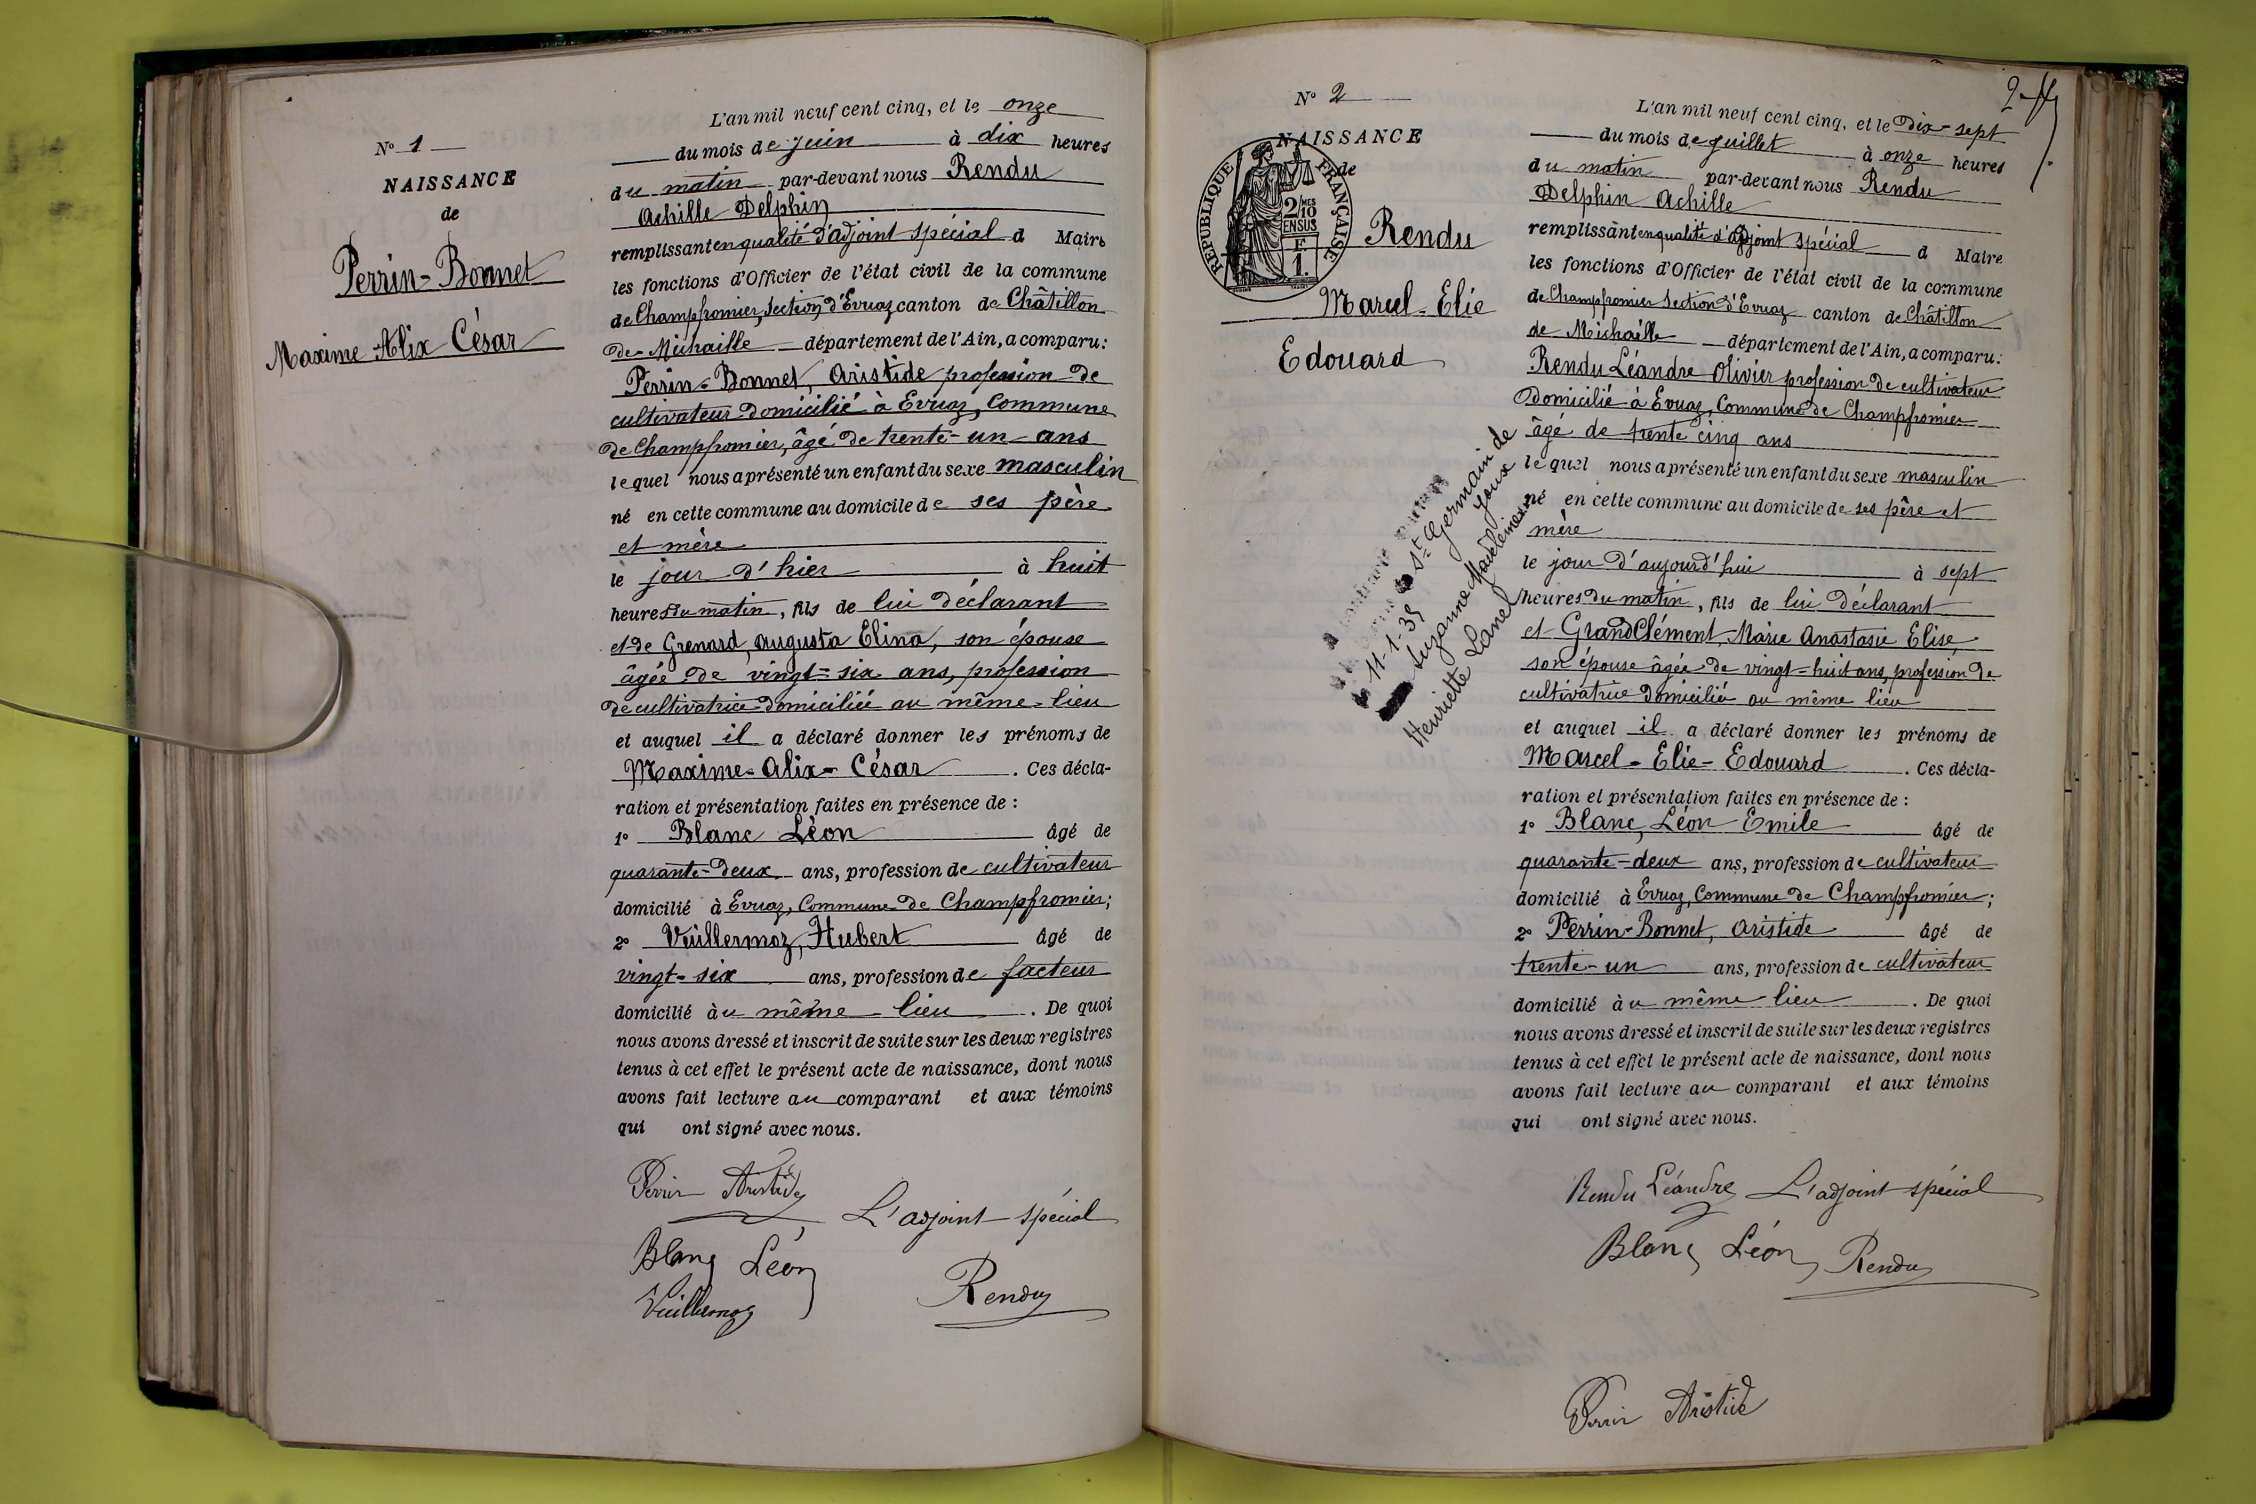 N° 1
NAISSANCE
de
Perrin-Bonnet
Maxime Alix César
L'an mil neuf cent cinq, et le onze
du mois de juin à dix heures
du matin par-devant nous Rendu
Achille Delphin
remplissant en qualité d'adjoint spécial d Maire
les fonctions d'Officier de l'état civil de la commune
de Champfromier, Section d'Evuaz canton de Châtillon
de-Michaille département de l'Ain, a comparu:
Perrin-Bonnet, Aristide profession de
cultivateur domicilié à Evuaz, Commune
de Champfromier, âgé de trente-un ans
lequel nous a présenté un enfant du sexe masculin
né en cette commune au domicile de ses père
et mère
le jour d'hier à huit
heures du matin, fils de lui déclarant
et de Grenard, Augusta Elina, son épouse
âgée de vingt-six ans, profession
de cultivatrice domiciliée au même lieu
et auquel il a déclaré donner les prénoms de
Maxime-Alix-César. Ces décla-
ration et présentation faites en présence de :
1° Blanc Léon âgé de
quarante-deux ans, profession de cultivateur
domicilié à Evuaz, Commune de Champfromier;
2° Vuillermoz, Hubert âgé de
vingt-six ans, profession de facteur
domicilié au même lieu. De quoi
nous avons dressé et inscrit de suite sur les deux registres
tenus à cet effet le présent acte de naissance, dont nous
avons fait lecture au comparant et aux témoins
qui ont signé avec nous.
Perrin Aristide
L'adjoint spécial
Blanc Léon
Rendu
Vuillermoz
2
N° 2
NAISSANCE
de
RÉPUBLIQUE FRANÇAISE
2 MES
10
EN SUS
F
1.
Rendu
Marcel-Elie
Edouard
St Germain de
Joux
11-1-35
Suzanne Madeleine
Henriette Lanel
L'an mil neuf cent cinq, et le Dix-sept
du mois de juillet à onze heures
du matin par-devant nous Rendu
Delphin Achille
remplissant en qualité d'adjoint spécial d Maire
les fonctions d'Officier de l'état civil de la commune
de Champfromier Section d'Evuaz canton de Châtillon
de Michaille département de l'Ain, a comparu:
Rendu Léandre Olivier profession de cultivateur
Domicilié à Evuaz, Commune de Champfromier
âgé de trente cinq ans
lequel nous a présenté un enfant du sexe masculin
né en cette commune au domicile de ses père et
mère
le jour d'aujourd'hui à sept
heures du matin, fils de lui déclarant
et GrandClément, Marie Anastasie Elise,
son épouse âgée de vingt-huit ans, profession de
cultivatrice domiciliée au même lieu
et auquel il a déclaré donner les prénoms de
Marcel-Elie-Edouard. Ces décla-
ration et présentation faites en présence de :
1° Blanc, Léon Emile âgé de
quarante-deux ans, profession de cultivateur
domicilié à Evuaz, Commune de Champfromier;
2° Perrin-Bonnet, Aristide âgé de
trente-un ans, profession de cultivateur
domicilié au même lieu. De quoi
nous avons dressé et inscrit de suite sur les deux registres
tenus à cet effet le présent acte de naissance, dont nous
avons fait lecture au comparant et aux témoins
qui ont signé avec nous.
Rendu Léandre L'adjoint spécial
Blanc Léon Rendu
Perrin Aristide